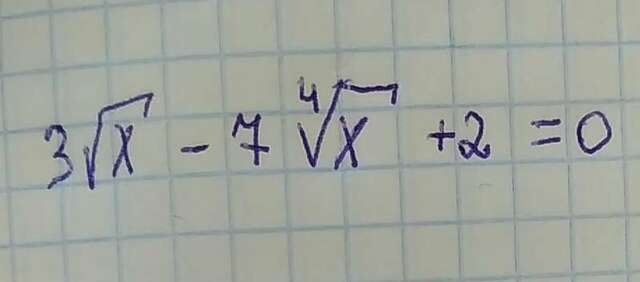 3√x - 7 ∜x +2 = 0